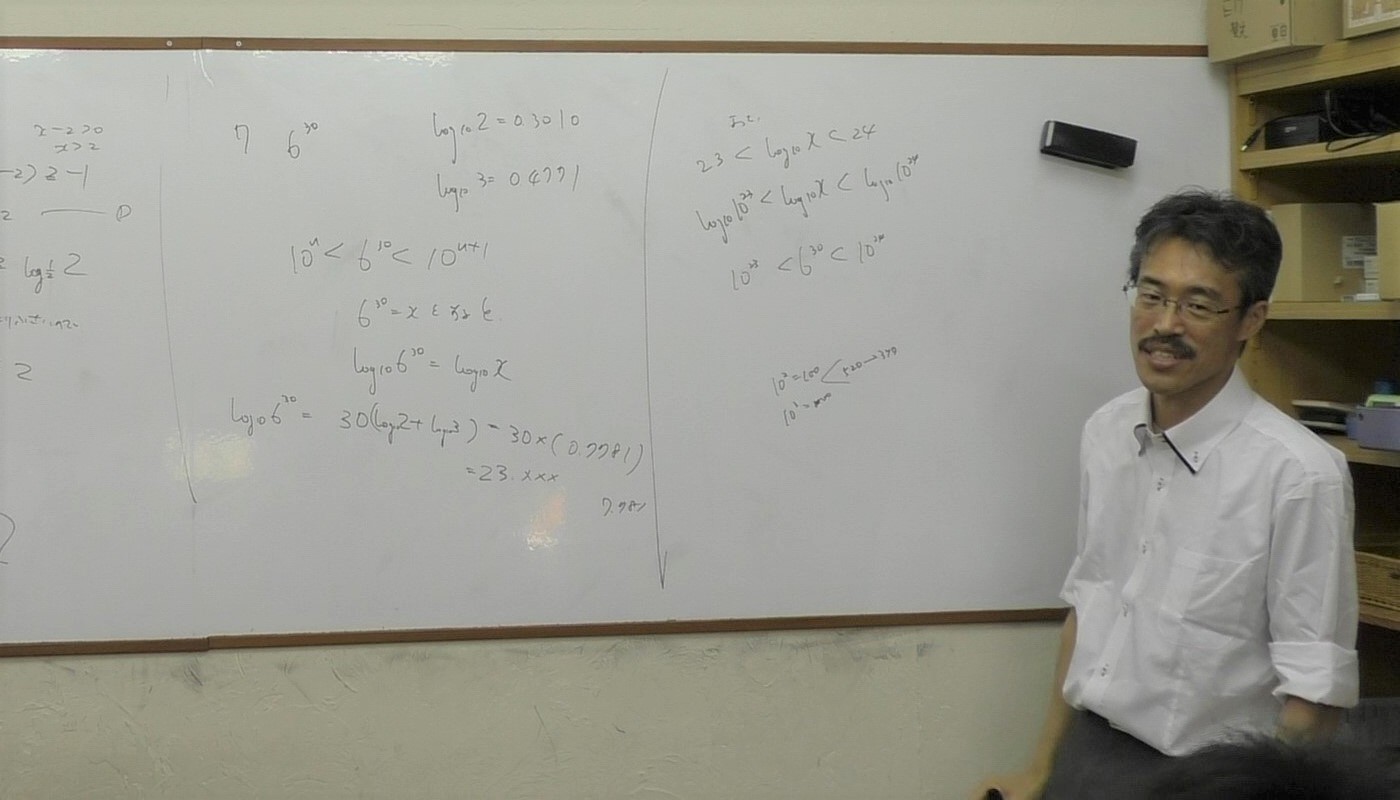 x-2>0
x>2
-2) ≥ -1
2 —— ①
log½ 2
2
7 6³⁰
log₁₀2=0.3010
log₁₀3=0.4771
10ⁿ < 6³⁰ < 10ⁿ⁺¹
6³⁰=x とすると
log₁₀6³⁰ = log₁₀x
log₁₀6³⁰ = 30(log₁₀2+log₁₀3) = 30×(0.7781)
=23.xxx
よって
23 < log₁₀x < 24
log₁₀10²³ < log₁₀x < log₁₀10²⁴
10²³ < 6³⁰ < 10²⁴
10²=100